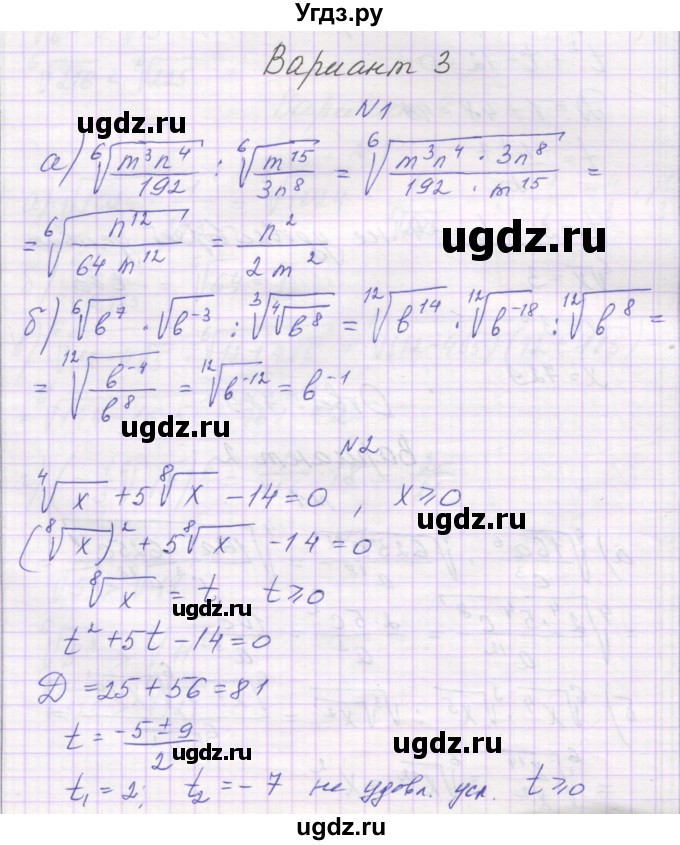 Угдз.ру
Вариант 3
ugdz.ru
N1
ugdz.ru
а) ⁶√(m³n⁴/192) : ⁶√(m¹⁵/3n⁸) = ⁶√(m³n⁴ · 3n⁸/192 · m¹⁵) =
= ⁶√(n¹²/64 m¹²) = n²/2m²
ugdz.ru
ugdz.ru
б) ⁶√b⁷ · √b⁻³ : ³√⁴√b⁸ = ¹²√b¹⁴ · ¹²√b⁻¹⁸ : ¹²√b⁸ =
= ¹²√(b⁻⁴/b⁸) = ¹²√b⁻¹² = b⁻¹
ugdz.ru
ugdz.ru
N2
⁴√x + 5 ⁸√x - 14 = 0 , x ⩾ 0
ugdz.ru
(⁸√x)² + 5 ⁸√x - 14 = 0
⁸√x = t, t ⩾ 0
ugdz.ru
t² + 5t - 14 = 0
ugdz.ru
Д = 25 + 56 = 81
t = (-5 ± 9)/2
ugdz.ru
ugdz.ru
t₁ = 2; t₂ = - 7 не удовл. усл. t ⩾ 0
ugdz.ru